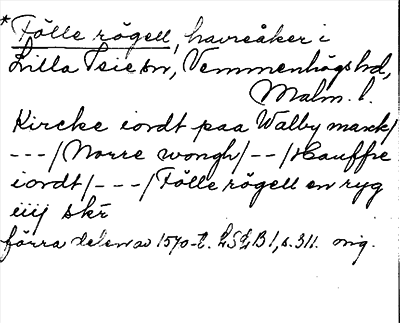 *Fölle rögell, havreåker i
Lilla Isie sn, Vemmenhögs hd,
Malm. l.
Kircke iordt paa Walby marck/
---/Norre wongh/--/Hauffre
iordt/---/Fölle rögell en ryg
iiij skr
förra delen av 1570-t. LSLB 1, s. 311. orig.